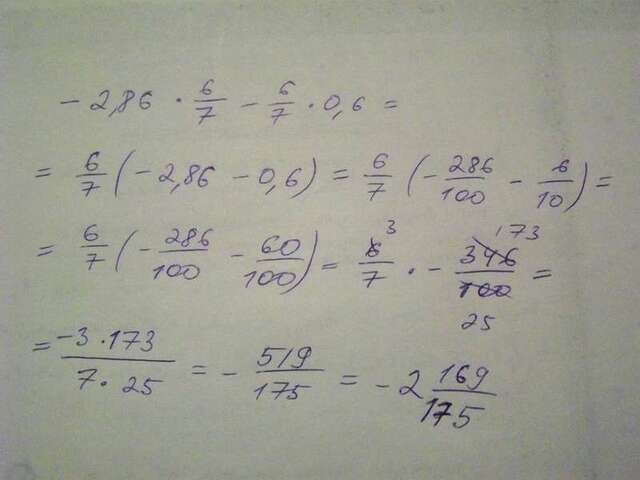 - 2,86 · 6/7 - 6/7 · 0,6 =
= 6/7 (- 2,86 - 0,6) = 6/7 (- 286/100 - 6/10) =
= 6/7 (- 286/100 - 60/100) = 6/7 3 · - 346/100 173 25 =
= -3 · 173/7 · 25 = - 519/175 = - 2 169/175